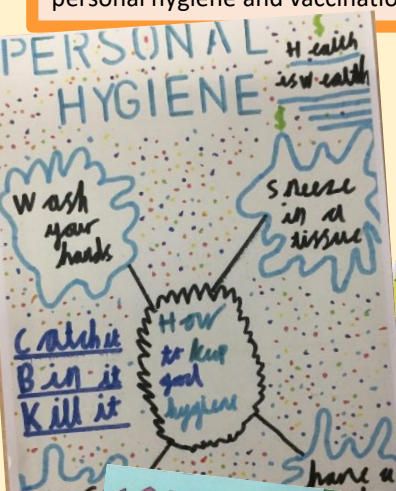 personal hygiene and vaccination
PERSONAL
HYGIENE
Health
is Wealth
Wash
your
hands
Sneeze
in a
tissue
Catch it
Bin it
Kill it
How
to keep
good
hygiene
have a